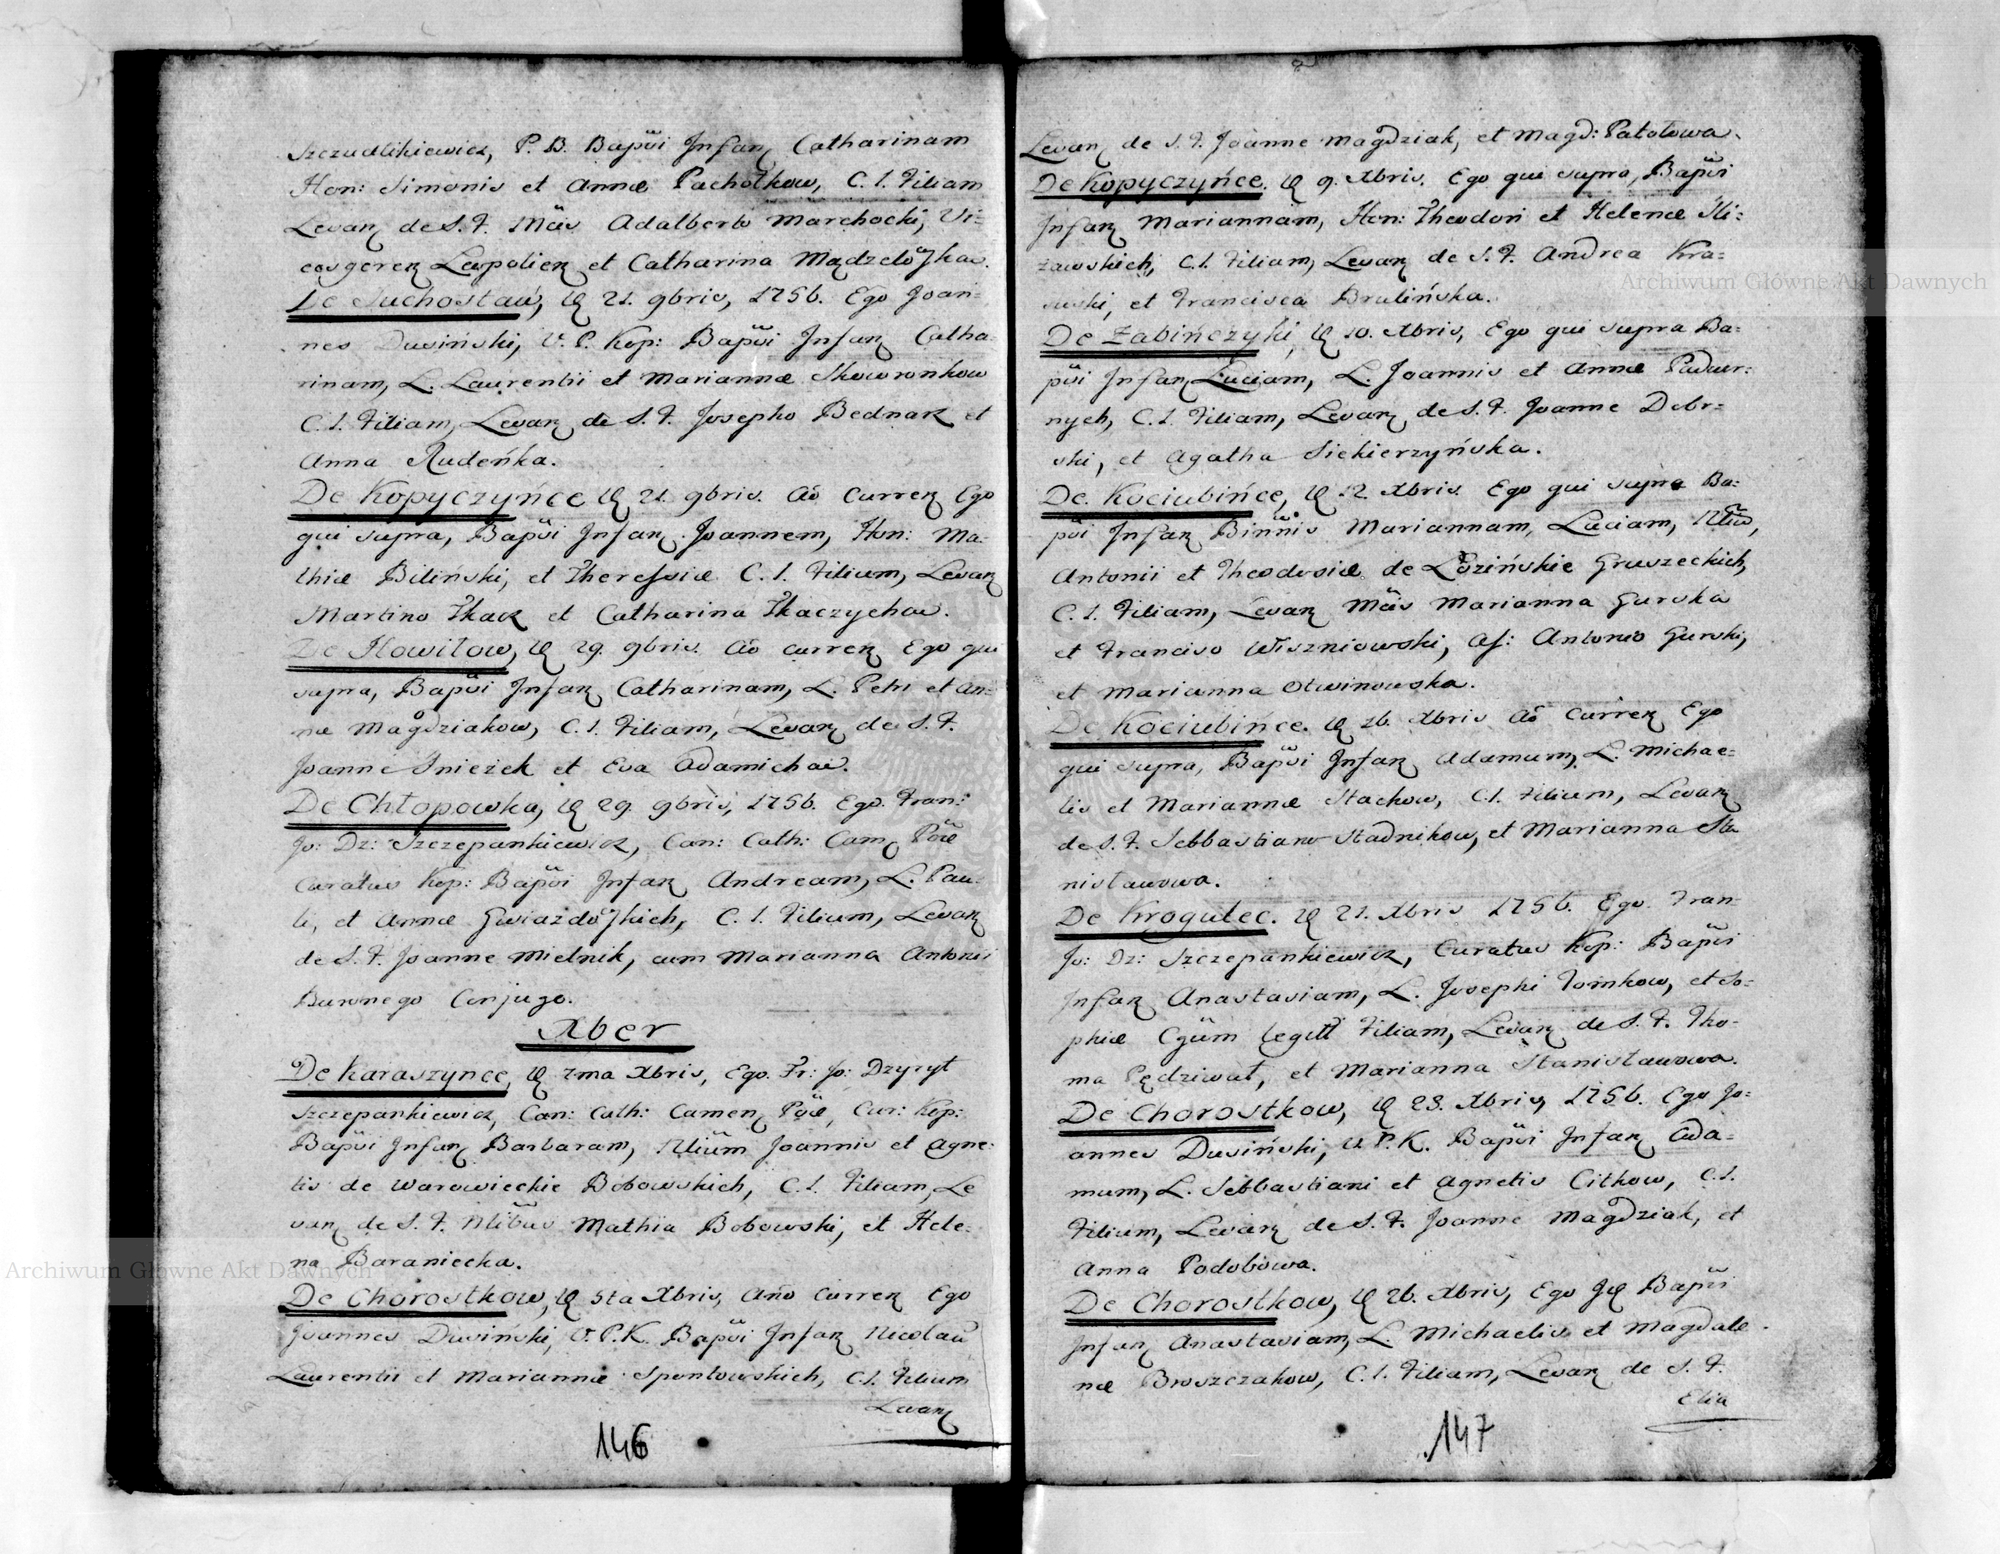 Szczudlikiewicz, P. B. Bapƶvi Infan Catharinam
Hon: Simonis et Annæ Pachotkow, C. L. Filiam
Levan de S. F. Mãs Adalberto Marchocki, Vi=
cesgeren Leopolien et Catharina Mądzelo͠ska.
De Suchostaw, 21. 9bris, 1756. Ego Joan=
nes Dusiński, V. P. Kop: Bapƶvi Infan Catha=
rinam, L. Laurentii et Mariannæ Skowronkow
C. L. Filiam, Levan de S. F. Josepho Bednarz et
Anna Rudeńka.
De Kopyczyńce 21. 9bris. Aõ curren Ego
qui supra, Bapƶvi Infan Joannem, Hon: Ma=
thiæ Biliński, et Theressiæ C. L. Filium, Levan
Martino Tkacz et Catharina Tkaczycha.
De Howiłow, 29. 9bris. Aõ curren Ego qui
supra, Bapƶvi Infan Catharinam, L. Petri et An=
næ Magdziakow, C. L. Filiam, Levan de S. F.
Joanne Snieżek et Eva Adamicha.
De Chłopowka, 29. 9bris, 1756. Ego. Fran:
Jo: Dz: Szczepankiewicz, Can: Cath: Cam
Curatus Kop: Bapƶvi Infan Andream, L. Pau=
li, et Annæ Gwiazdo͠skich, C. L. Filium, Levan
de S. F. Joanne Mielnik, cum Marianna Antonii
Burnego Conjuge.
Xber
De Karaszynce, 7ma Xbris, Ego. Fr: Jo: Dzyryt
Szczepankiewicz, Can: Cath: Camen Cur: Kop:
Bapƶvi Infan Barbaram, Joannis et Agne=
tis de Warowieckie Bobowskich, C. L. Filiam, Le
van de S. F. Mathia Bobowski, et Hele=
na Baraniecka.
De Chorostkow, 5ta Xbris, Año curren Ego
Joannes Dusiński, V. P. K. Bapƶvi Infan Nicolaũ
Laurentii et Mariannæ Spontowskich, C. L. Filium
Levan
146
Levan de S. F. Joanne Magdziak, et Magd: Patotowa.
De Kopyczyńce. 9. Xbris. Ego qui supra, Bapƶvi
Infan Mariannam, Hon: Theodori et Helenæ Ili=
zawskich, C. L. Filiam, Levan de S. F. Andrea Kra=
suski, et Francisca Brulińska.
De Żabińczyki, 10. Xbris, Ego qui supra Ba=
pƶvi Infan Luciam, L. Joannis et Annæ Padwor=
nych, C. L. Filiam, Levan de S. F. Joanne Dobr=
ski, et Agatha Siekierzyńska.
De Kociubińce, 12 Xbris. Ego qui supra Ba=
pƶvi Infan Binnis Mariannam, Luciam,
Antonii et Theodosiæ de Łozińskie Gruszeckich,
C. L. Filiam, Levan Mãs Marianna Gurska
et Franciso Wiszniowski, Aſ: Antonio Gurski,
et Marianna Otwinowska.
De Kociubińce. 26. Xbris Aõ curren Ego
qui supra, Bapƶvi Infan Adamum, L. Michae=
lis et Mariannæ Stachow, C. L. Filium, Levan
de S. F. Sebbastiano Stadnikow, et Marianna Sta
nisławowa.
De Krogulec. 21. Xbris 1756. Ego. Fran=
Jo: Dz: Szczepankiewicz, Curatus Kop: Bapƶvi
Infan Anastasiam, L. Josephi Tomkow, et So=
phiæ Cgũm legitt Filiam, Levan de S. F. Tho=
ma Pędziwał, et Marianna Stanisławowa.
De Chorostkow, 23. Xbris, 1756. Ego Jo=
annes Dusiński, V. P. K. Bapƶvi Infan Ada=
mum, L. Sebbastiani et Agnetis Citkow, C. L.
Filium, Levan de S. F. Joanne Magdziak, et
Anna Podobowa.
De Chorostkow, 26. Xbris, Ego Bapƶvi
Infan Anastasiam, L. Michaelis et Magdale=
næ Broszczakow, C. L. Filiam, Levan de S. F.
Elia
147
Archiwum Główne Akt Dawnych
Archiwum Główne Akt Dawnych